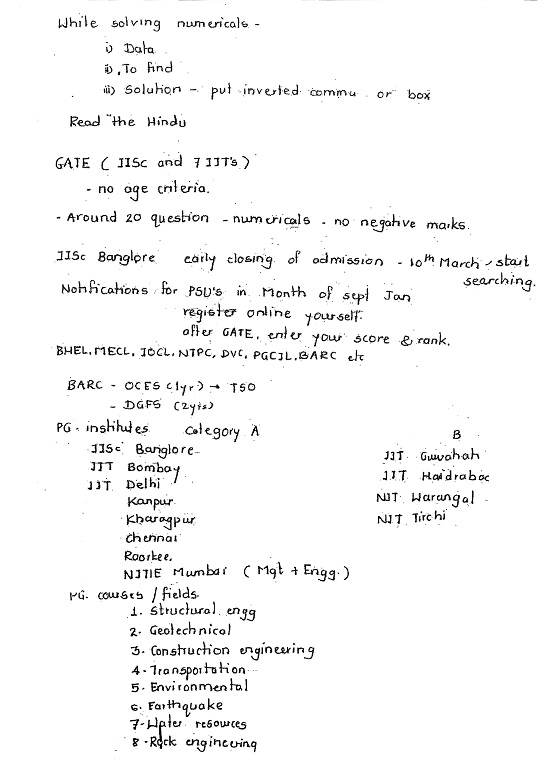 While solving numericals -
i) Data
ii) To find
iii) Solution - put inverted commu or box
Read "the Hindu
GATE ( IISc and 7 IIT's )
- no age criteria.
- Around 20 question - numericals - no negative marks.
IISc Banglore early closing of admission - 10th March - start
searching.
Notifications for PSU's in Month of sept Jan
register online yourself.
after GATE, enter your score & rank.
BHEL, MECL, IOCL, NTPC, DVC, PGCIL, BARC etc
BARC - OCES (1yr) → TSO
- DGFS (2yrs)
PG - institutes Category A B
IISc Banglore IIT Guwahah
IIT Bombay IIT Haidrabac
IIT Delhi NIT Warangal
Kanpur NIT Tirchi
Kharagpur
Chennai
Roorkee.
NITIE Mumbai ( Mgt + Engg. )
PG. courses / fields
1. Structural engg
2. Geotechnical
3. Construction engineering
4. Transportation
5. Environmental
6. Earthquake
7. Water resources
8. Rock engineering